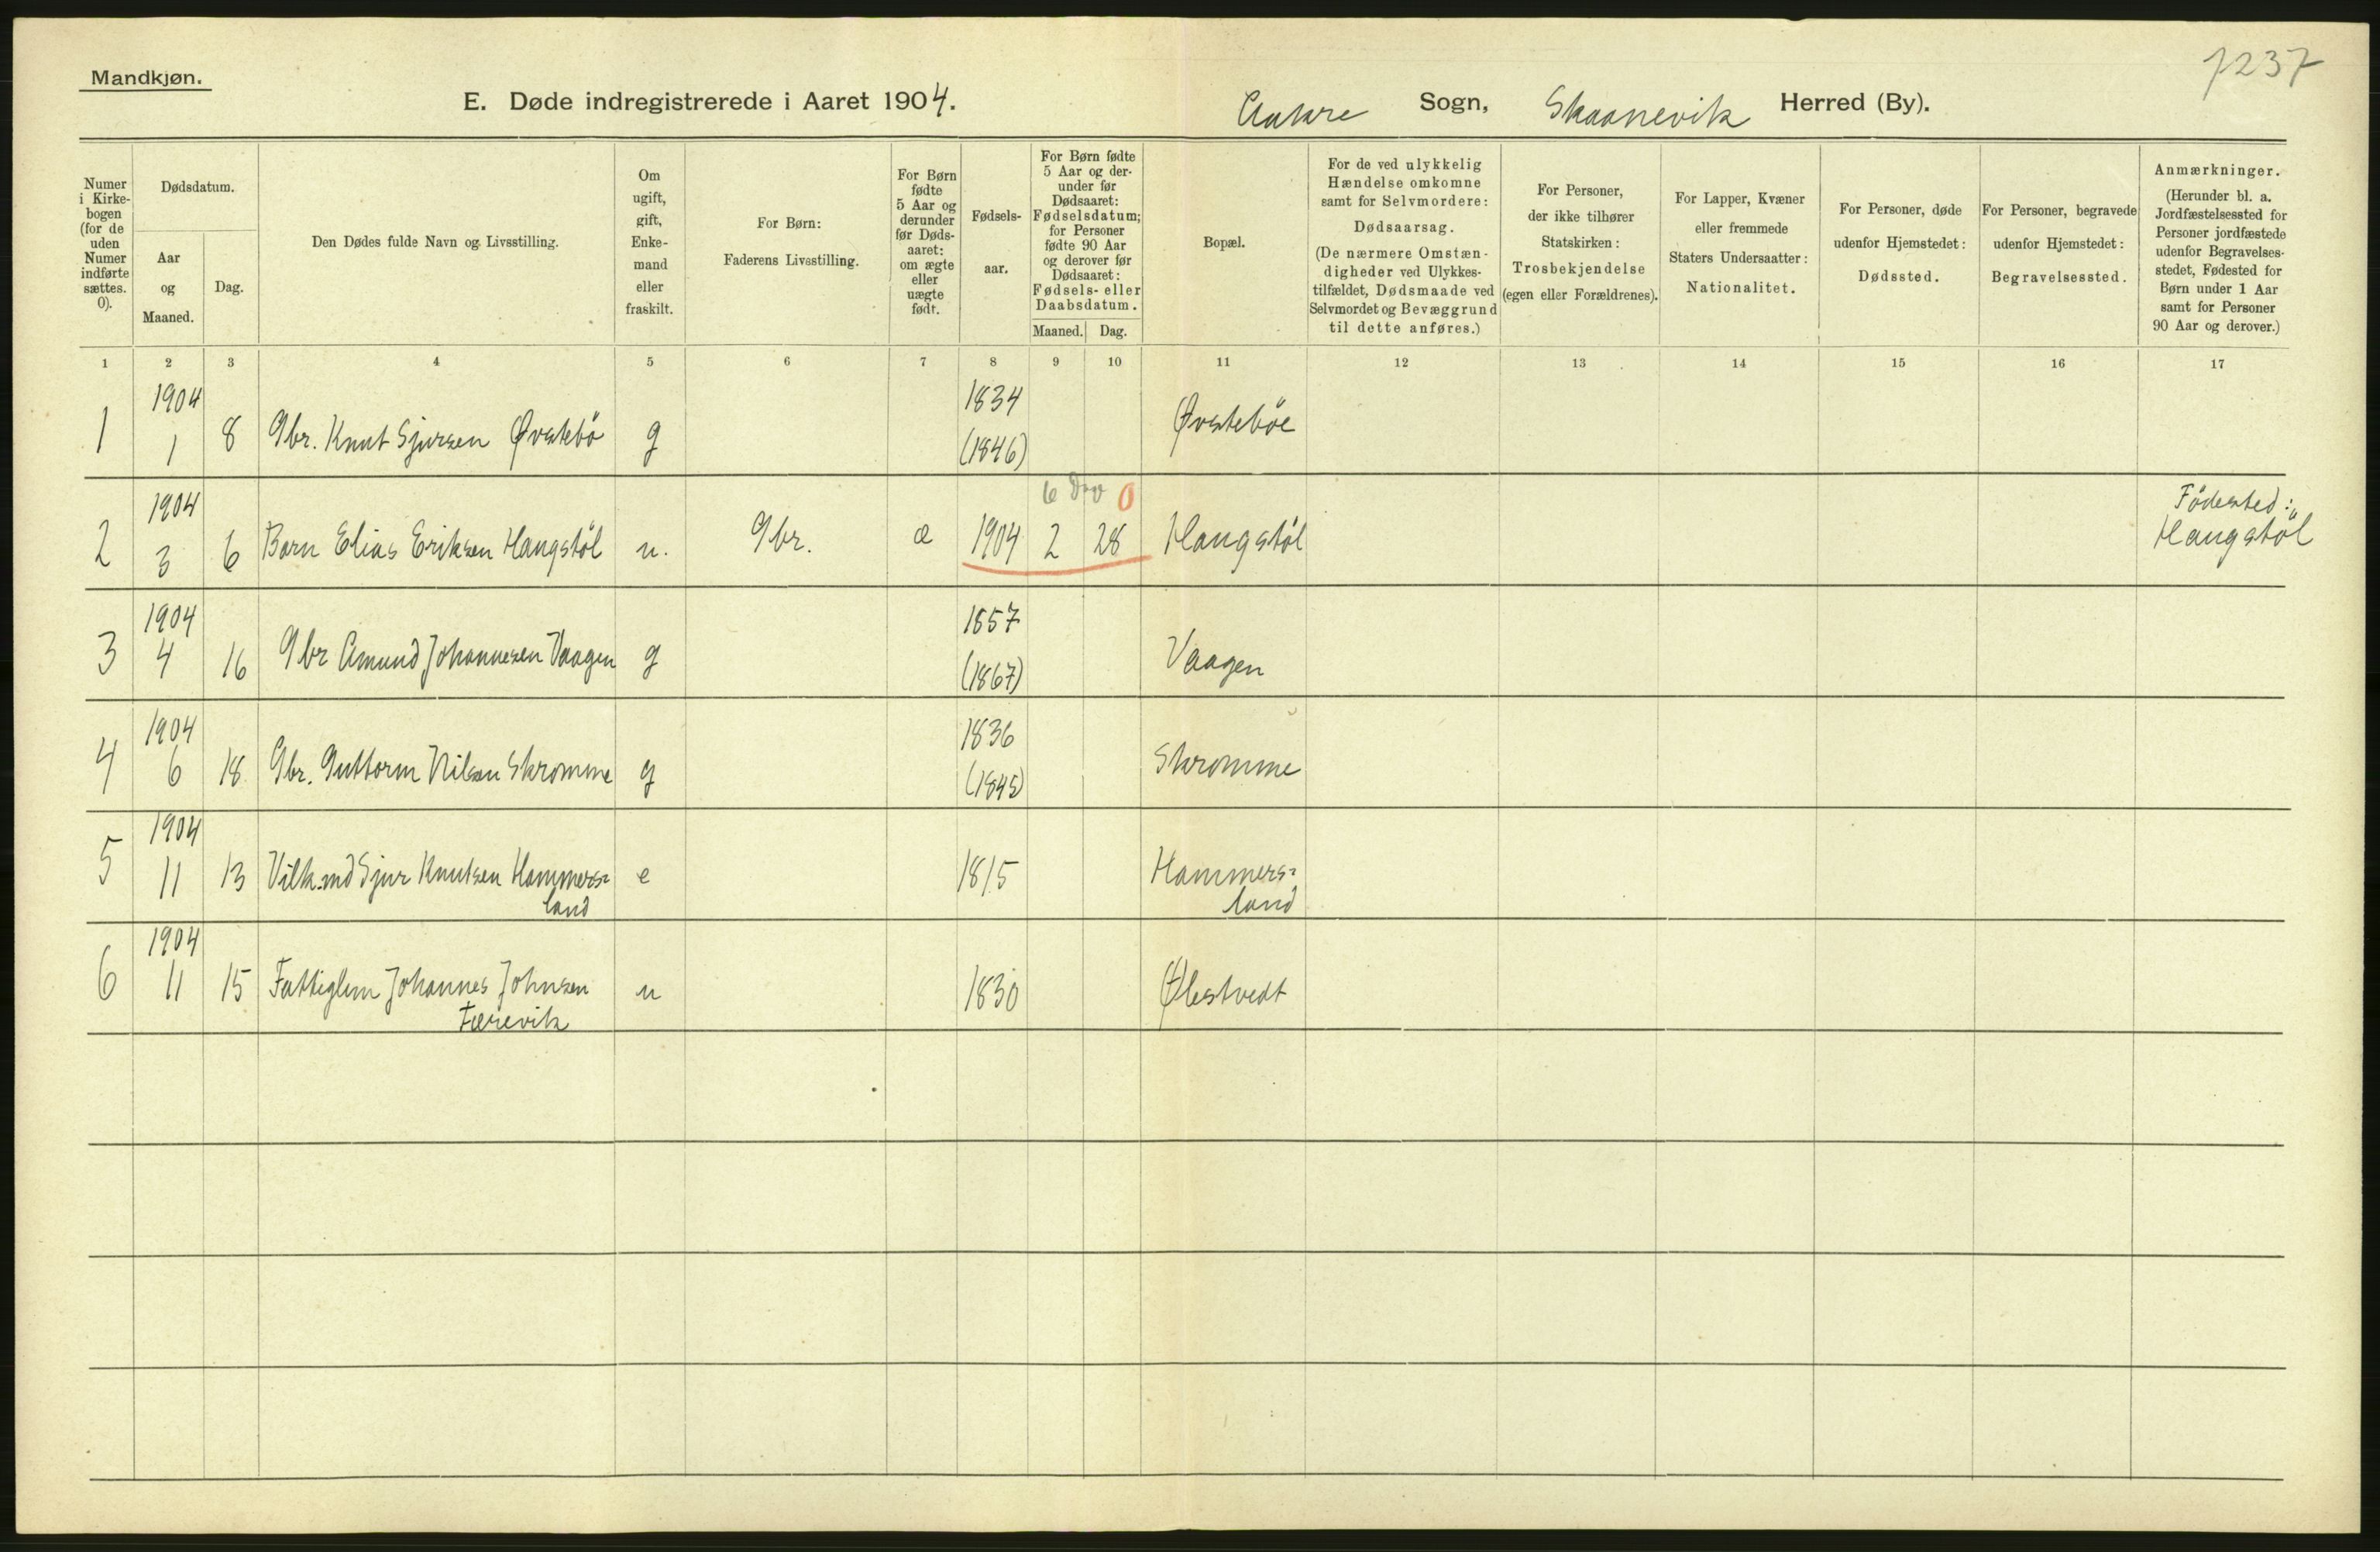 7237
Mandkjøn.
E. Døde indregistrerede i Aaret 1904. Sogn, Skaanevik Herred (By).
Numer i Kirkebogen (for de uden Numer indførte sættes. 0).
Dødsdatum.
Aar og Maaned.
Dag.
Den Dødes fulde Navn og Livsstilling.
Om ugift, gift, Enkemand eller fraskilt.
For Børn: Faderens Livsstilling.
For Børn fødte 5 Aar og derunder før Dødsaaret: om ægte eller uægte født.
Fødselsaar.
For Børn fødte 5 Aar og derunder før Dødsaaret: Fødselsdatum; for Personer fødte 90 Aar og derover før Dødsaaret: Fødsels- eller Daabsdatum.
Maaned. Dag.
Bopæl.
For de ved ulykkelig Hændelse omkomne samt for Selvmordere: Dødsaarsag. (De nærmere Omstændigheder ved Ulykkestilfældet, Dødsmaade ved Selvmordet og Bevæggrund til dette anføres.)
For Personer, der ikke tilhører Statskirken: Trosbekjendelse (egen eller Forældrenes).
For Lapper, Kvæner eller fremmede Staters Undersaatter: Nationalitet.
For Personer, døde udenfor Hjemstedet: Dødssted.
For Personer, begravede udenfor Hjemstedet: Begravelsessted.
Anmærkninger. (Herunder bl. a. Jordfæstelsessted for Personer jordfæstede udenfor Begravelsesstedet, Fødested for Børn under 1 Aar samt for Personer 90 Aar og derover.)
1 2 3 4 5 6 7 8 9 10 11 12 13 14 15 16 17
1904 1834
1 1 8 Gbr. Knut Sjursen Øvstebö g (1846) Øvstebøe
1904 6 0 Födested:
2 3 6 Barn Elias Eriksen Haugstöl u. Gbr. æ 1904 2 28 Haugstöl Haugstöl
1904 1857
3 4 16 Gbr Amund Johannesen Vaagen g (1867) Vaagen
1904 1836
4 6 18 Gbr. Guttorm Nilsen Skromme g (1845) Skromme
1904
5 11 13 Vilk.md Sjur Knutsen Hammers= e 1815 Hammers=
land land
1904
6 11 15 Fattiglem Johannes Johnsen u 1830 Ølestvedt
Færevik